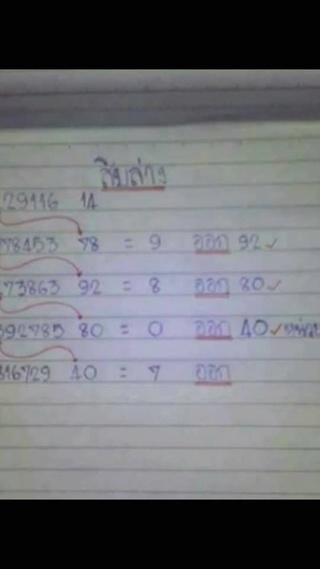 สิบล่าง
29116 14
78453 78 = 9 ออก 92 ✓
73863 92 = 8 ออก 80 ✓
392785 80 = 0 ออก 40 ✓
316729 40 = 7 ออก